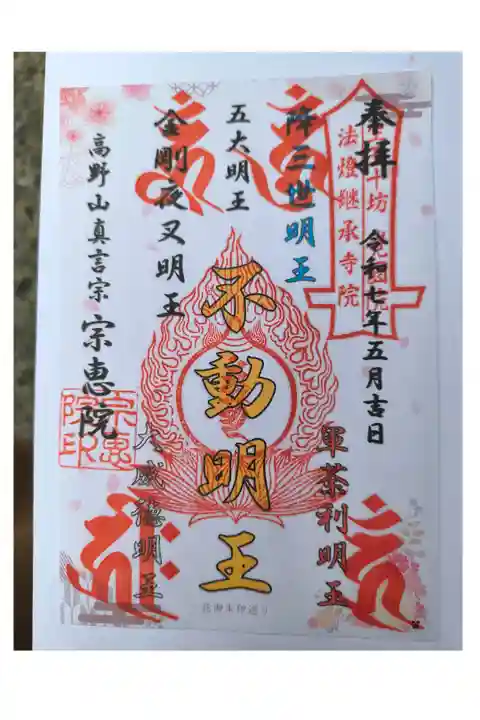 奉拝
令和七年五月吉日
法燈継承寺院
降三世明王
軍荼利明王
五大明王
不動明王
金剛夜叉明王
大威徳明王
高野山真言宗
宗恵院
宗恵院印